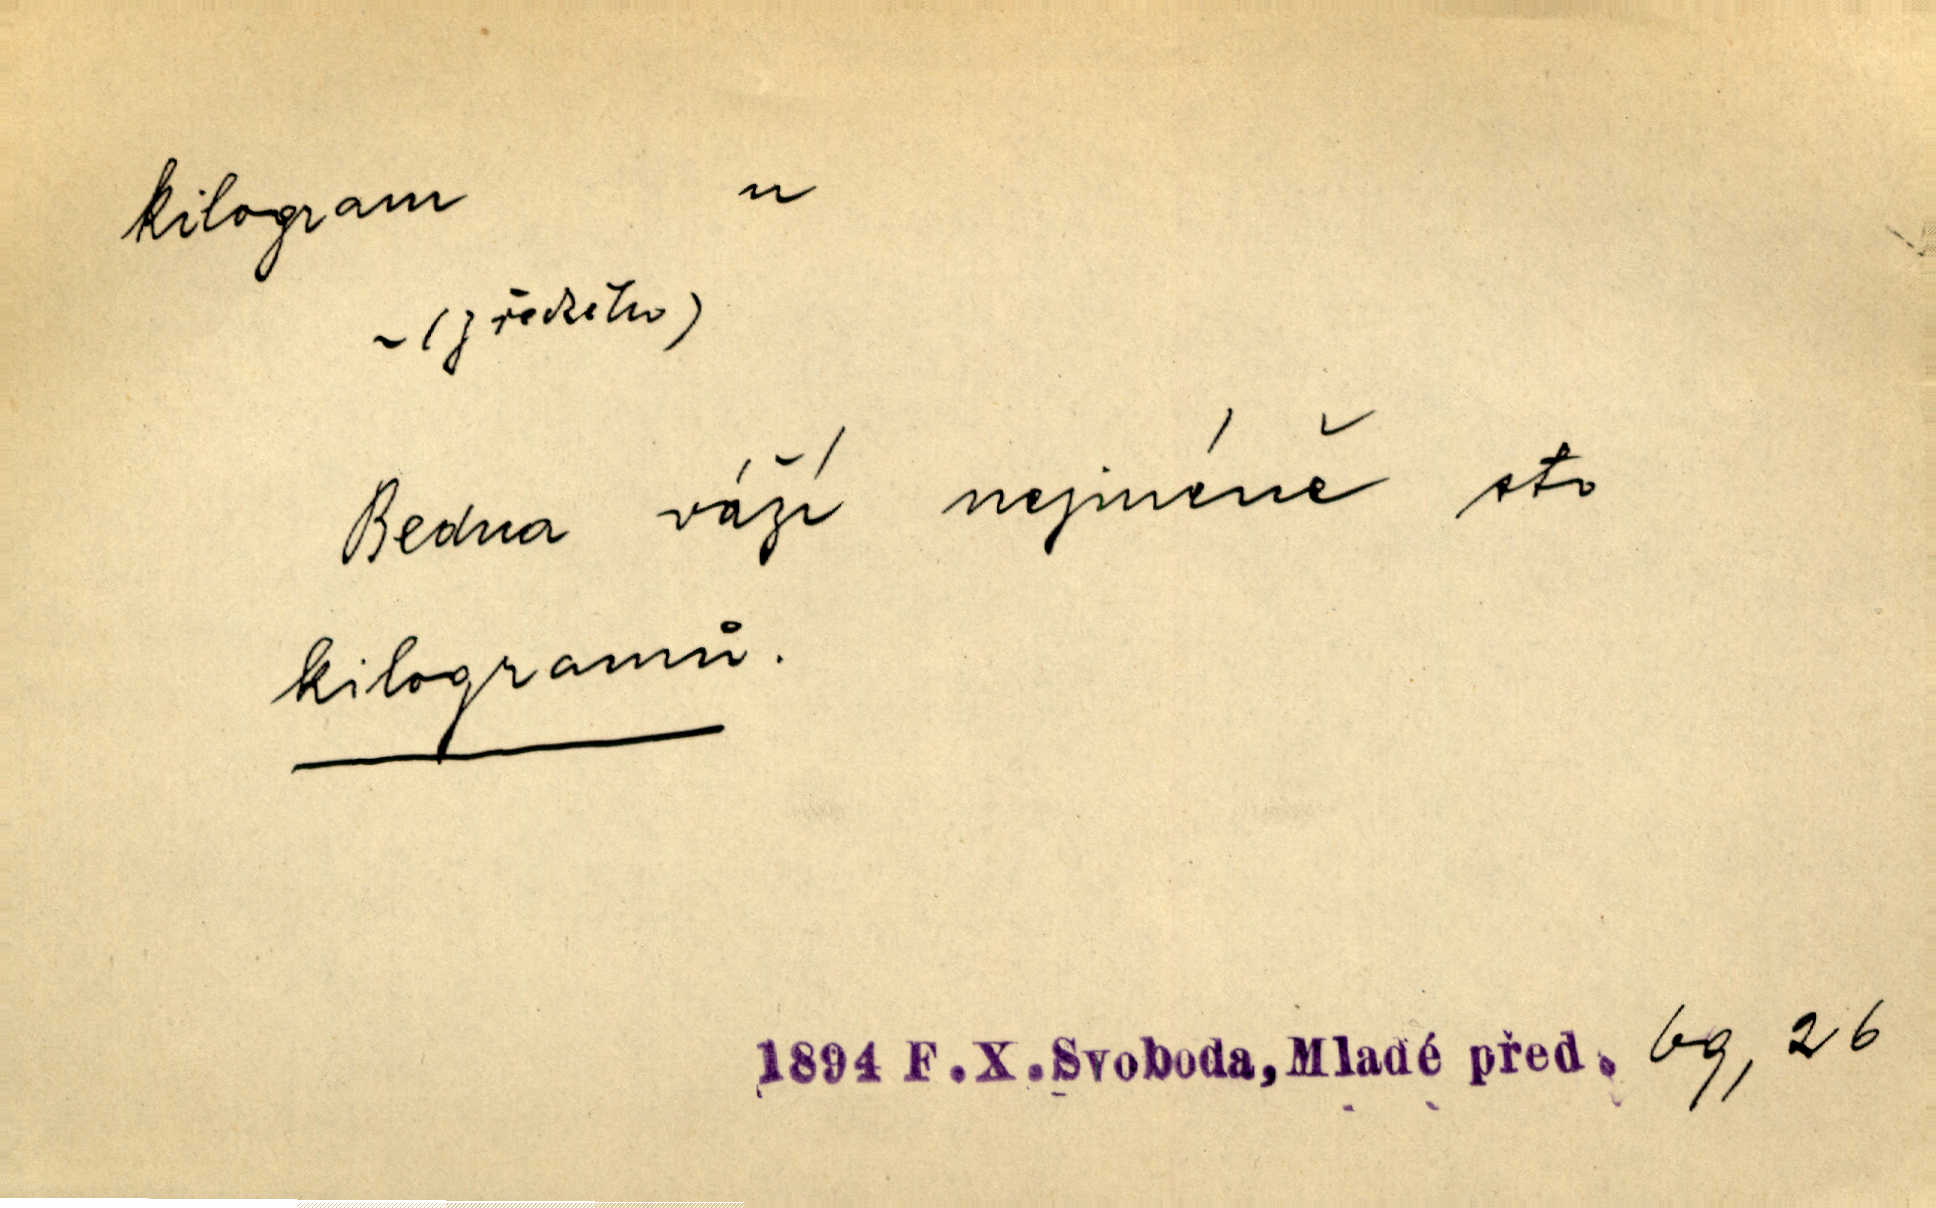 kilogram u
~ (z řeckého)
Bedna váží nejméně sto
kilogramů.
1894 F.X.Svoboda, Mladé před. 69, 26